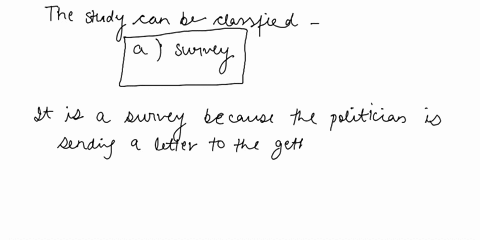 The study can be classfied -
a) survey
It is a survey because the politician is
sending a letter to the gett